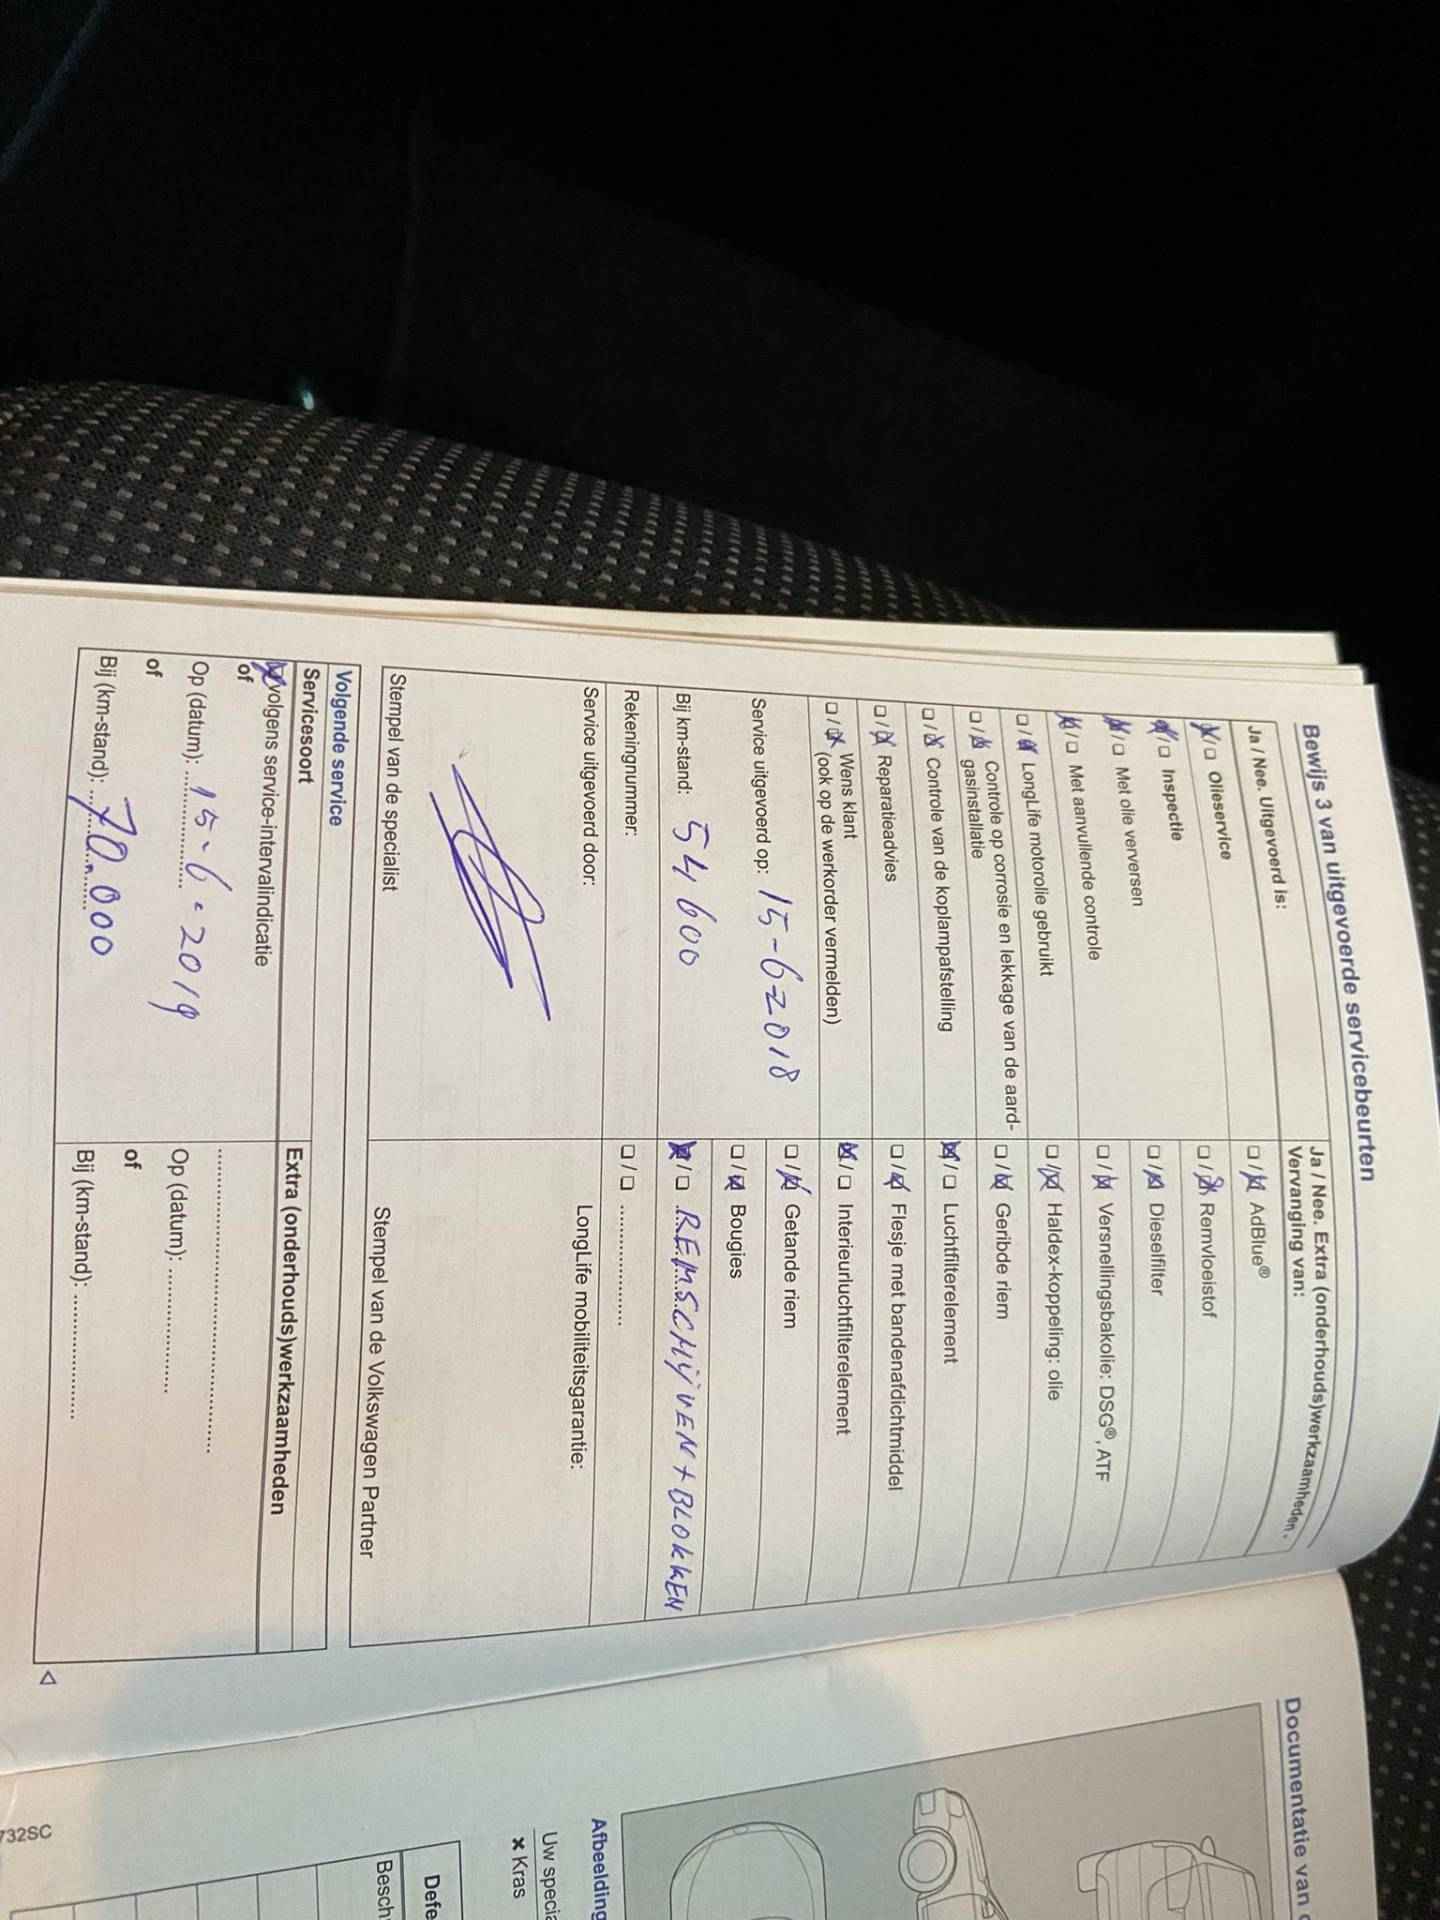 Bewijs 3 van uitgevoerde servicebeurten
Ja / Nee. Uitgevoerd is:
☒ / ☐ Olieservice
☒ / ☐ Inspectie
☒ / ☐ Met olie verversen
☒ / ☐ Met aanvullende controle
☐ / ☒ LongLife motorolie gebruikt
☐ / ☒ Controle op corrosie en lekkage van de aard-
gasinstallatie
☐ / ☒ Controle van de koplampafstelling
☐ / ☒ Reparatieadvies
☐ / ☒ Wens klant
(ook op de werkorder vermelden)
Service uitgevoerd op: 15-6 2018
Bij km-stand: 54 600
Rekeningnummer:
Service uitgevoerd door:
Stempel van de specialist
Ja / Nee. Extra (onderhouds)werkzaamheden.
Vervanging van:
☐ / ☒ AdBlue®
☐ / ☒ Remvloeistof
☐ / ☒ Dieselfilter
☐ / ☒ Versnellingsbakolie: DSG®, ATF
☐ / ☒ Haldex-koppeling: olie
☐ / ☒ Geribde riem
☒ / ☐ Luchtfilterelement
☐ / ☒ Flesje met bandenafdichtmiddel
☒ / ☐ Interieurluchtfilterelement
☐ / ☒ Getande riem
☐ / ☒ Bougies
☒ / ☐ REMSCHIJVEN + BLOKKEN
☐ / ☐ ..................
LongLife mobiliteitsgarantie:
Stempel van de Volkswagen Partner
Volgende service
Servicesoort
☒ volgens service-intervalindicatie
of
Op (datum): 15-6-2019
of
Bij (km-stand): 70.000
Extra (onderhouds)werkzaamheden
............................................
Op (datum): ..................
of
Bij (km-stand): ..................
Documentatie van
Afbeelding
Uw specia
× Kras
Defe
Besch
732SC